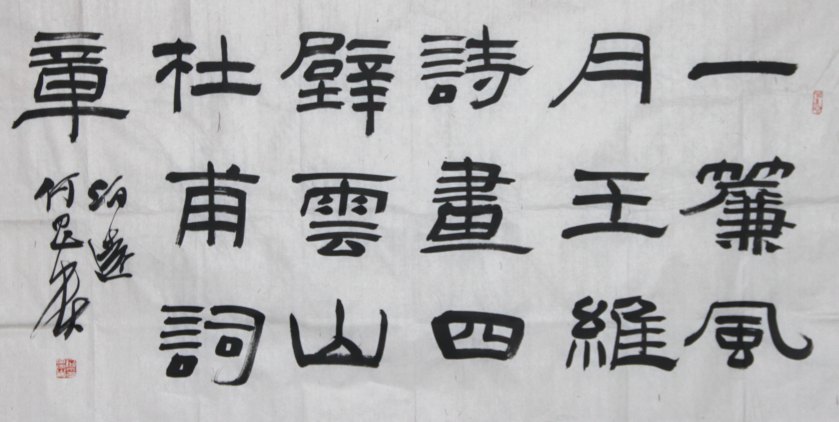 一簾風
月王維
詩畫四
壁雲山
杜甫詞
章
何